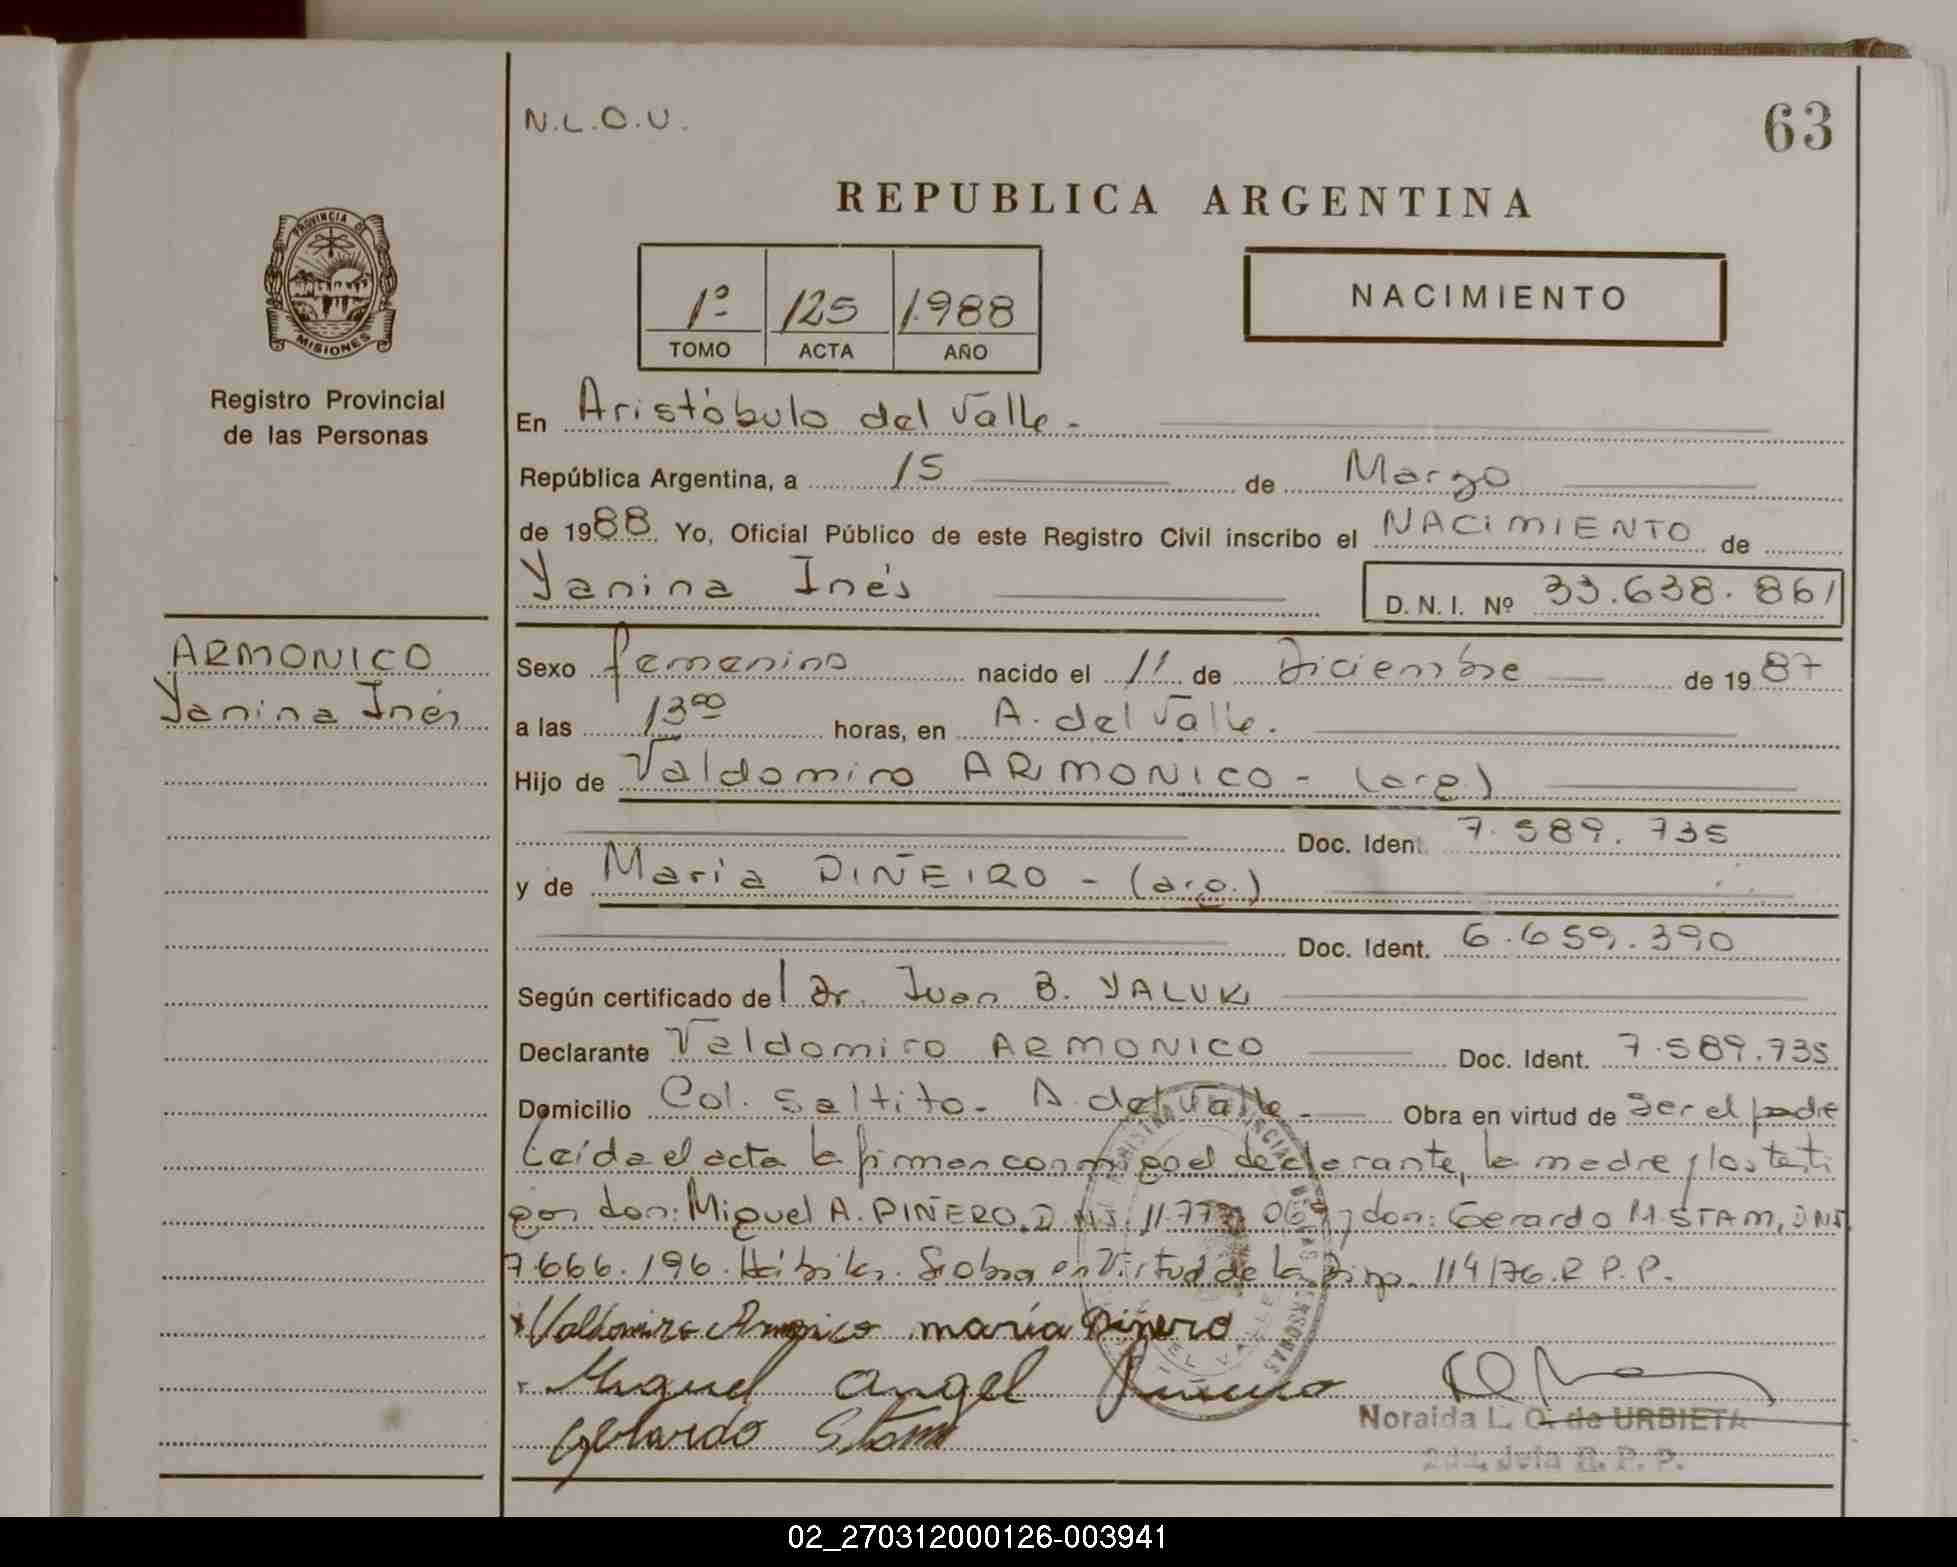 N.L.O.U.
63
REPUBLICA ARGENTINA
PROVINCIA DE
MISIONES
Registro Provincial
de las Personas
1º 125 1.988
TOMO ACTA AÑO
NACIMIENTO
En Aristóbulo del Valle.-
República Argentina, a 15 de Marzo
de 1988. Yo, Oficial Público de este Registro Civil inscribo el NACIMIENTO de
Yanina Inés D.N.I. Nº 33.638.861
ARMONICO
Yanina Inés
Sexo femenino nacido el 11 de Diciembre de 1987
a las 13 00 horas, en A. del Valle.
Hijo de Valdomiro ARMONICO - (arg.)
Doc. Ident. 7.589.735
y de María PIÑEIRO - (arg.)
Doc. Ident. 6.659.390
Según certificado del Dr. Juan B. YALUK
Declarante Valdomiro ARMONICO Doc. Ident. 7.589.735
Domicilio Col. Saltito - A. del Valle.- Obra en virtud de ser el padre
Leída el acta la firman conmigo el declarante, la madre y los testi
gos don: Miguel A. PIÑERO. D.N.I. 11.77 06 y don: Gerardo M. STAM, DNI
7.666.196. Hábiles. Se obra en Virtud de la Disp. 114/76.R.P.P.
Valdomiro Armonico maría Piñero
Miguel Angel Piñero
Gerardo Stam
Noraida L. O. de URBIETA
2da. Jefa R. P. P.
02_270312000126-003941